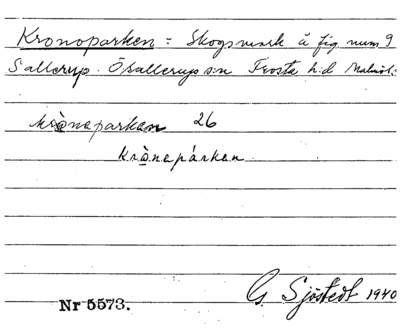 Kronoparken = Skogsmark å fig num 9
Sallerup. Ö Sallerup s:n Frosta h:d Malmöl:
kròneparkan 26
kròneparken
G. Sjöstedt 1940
Nr 5573.